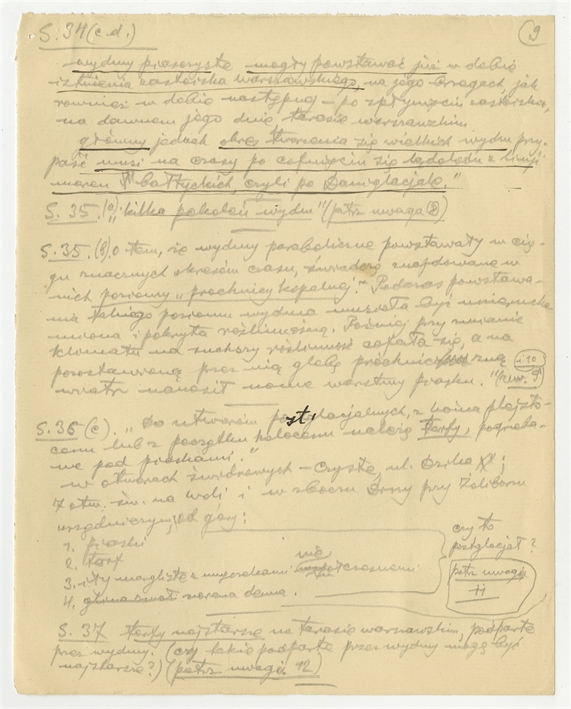 S. 34 (c.d.) 9
wydmy piaszczyste mogły powstawać już w dobie
istnienia zastoiska warszawskiego na jego brzegach, jak
również w dobie następnej – po spłynięciu zastoiska,
na dawnem jego dnie, tarasie warszawskim
główny jednak okres tworzenia się wielkich wydm przy-
paść musi na czasy po cofnięciu się lądolodu z linji
moren bałtyckich czyli po Daniglacjale."
S. 35. (a) „kilka pokoleń wydm" (patrz uwaga 8)
S. 35. (b) O tem, że wydmy paraboliczne powstawały w cią-
gu znacznych okresów czasu, świadczą znajdowane w
nich poziomy „próchnicy kopalnej". Podczas powstawa-
nia takiego poziomu wydma musiała być unierucho-
miona i pokryta roślinnością. Później, przy zmianie
klimatu na suchszy roślinność cofała się, a na
pozostawioną przez nią glebę próchniczną
wiatr nanosił nowe warstwy piasku." (uw. 9 i 10)
S. 36 (c). „Do utworów postglacjalnych, z końca plejsto-
cenu lub z początku holocenu należą torfy, pogrzeba-
ne pod piaskami."
w otworach świdrowych – Czyste, ul. Dzika
7 otw. św. na Woli i w zboczu Góry przy Żoliborzu
urzędniczym, od góry:
1. piaski
2. torf
3. iły margliste z muszelkami nie
4. glina morena denna.
czy to
postglacjał?
patrz uwagę
11
S. 37 torfy najstarsze na tarasie warszawskim, podparte
przez wydmy. (czy takie podparte przez wydmy mogą być
najstarsze?) (patrz uwagę 12)